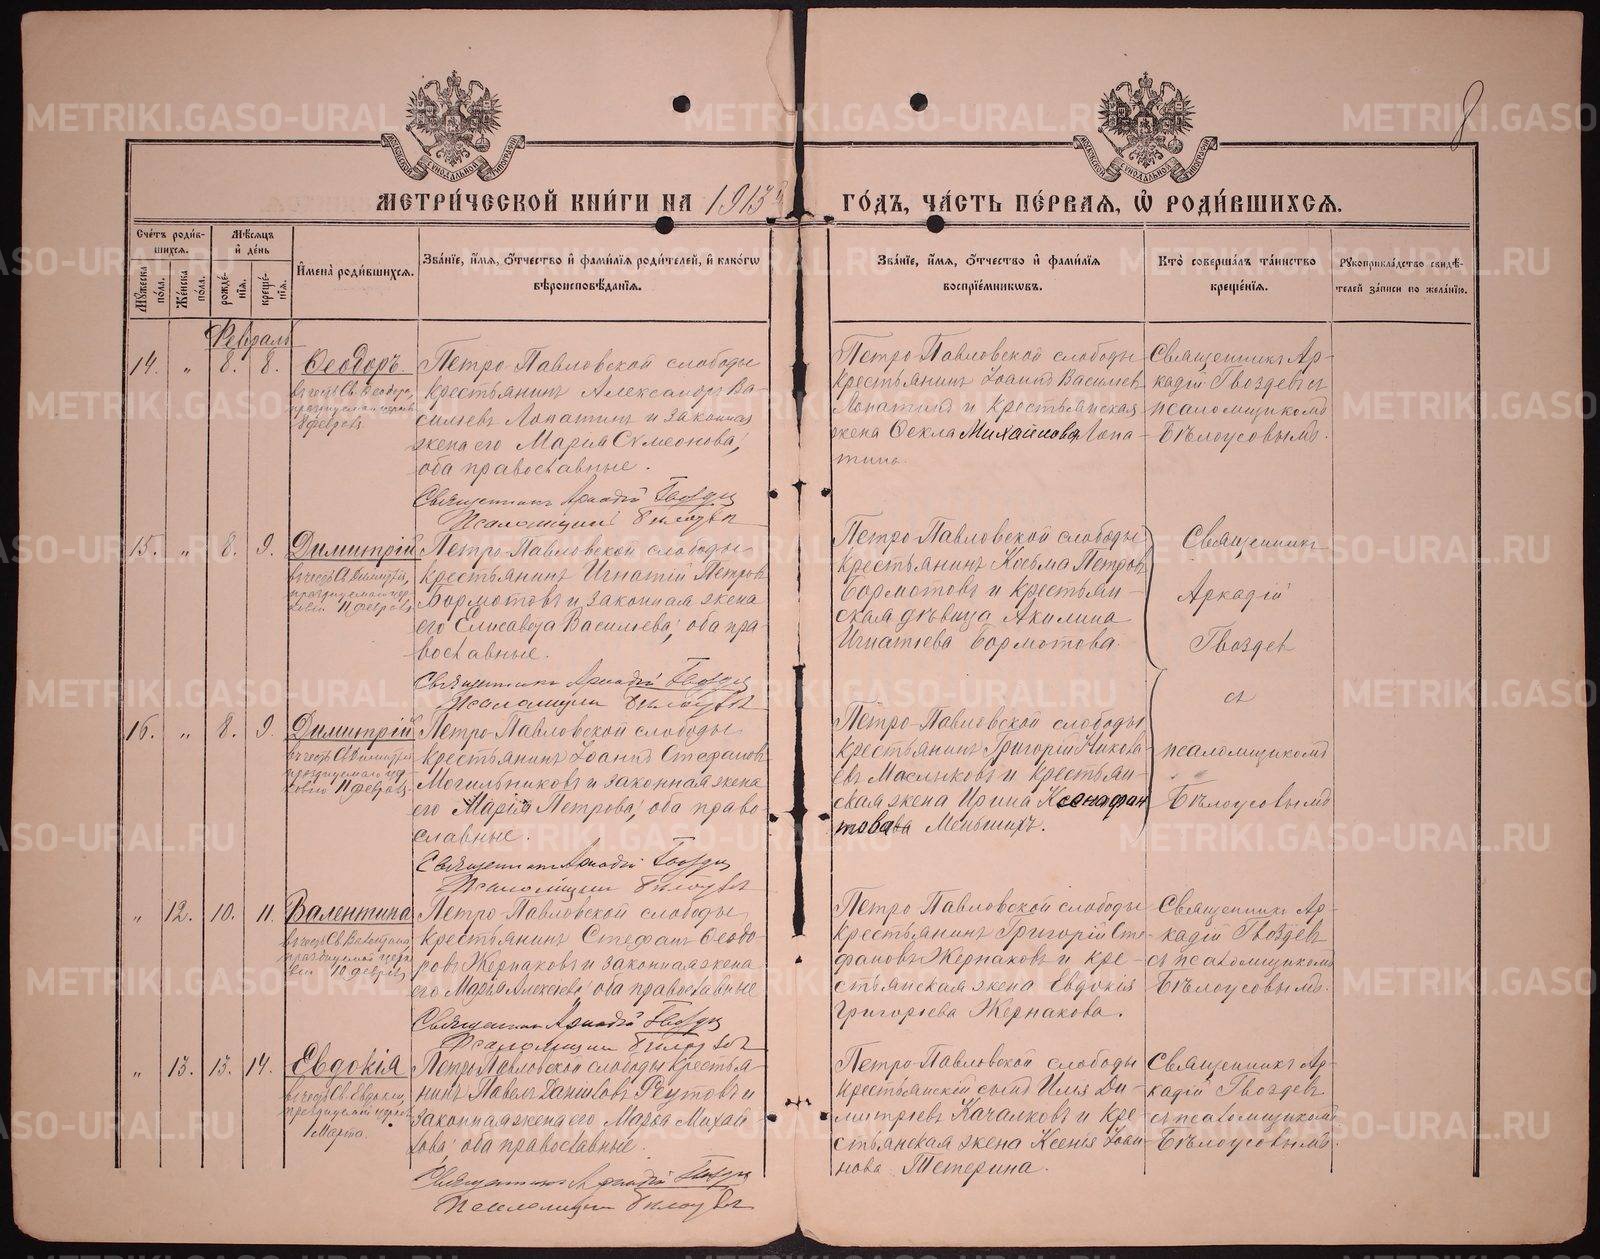 8
МЕТРИ́ЧЕСКОЙ КНИ́ГИ НА 1913 ГО́ДЪ, ЧА́СТЬ ПЕ́РВАЯ, Ѡ҆ РОДИ́ВШИХСѦ.
Сче́тъ роди́в-
шихсѧ.
Мꙋ́жеска по́ла.
Же́нска по́ла.
Мѣ́сѧцъ и҆ де́нь
рожде́-
нїѧ.
креще́-
нїѧ.
И҆мена̀ роди́вшихсѧ.
Зва́нїе, и҆́мѧ, ѻ҆́тчество и҆ фами́лїѧ роди́телей, и҆ како́гѡ
вѣроисповѣ́данїѧ.
Зва́нїе, и҆́мѧ, ѻ҆́тчество и҆ фами́лїѧ
воспрїе́мникѡвъ.
Кто̀ соверша́лъ та́инство
креще́нїѧ.
Рꙋкоприкла́дство свидѣ́-
телей за́писи по жела́нїю.
Февраль
14. „ 8. 8. Ѳеодоръ
въ честь Св. Ѳеодора,
8 февраля
Петро-Павловской слободы
крестьянинъ Александръ Ва-
сильевъ Лопатинъ и законная
жена его Марія Сѵмеонова,
оба православные.
Священникъ Аркадій Гвоздевъ
Псаломщикъ Бѣлоусовъ
Петро-Павловской слободы
крестьянинъ Іоаннъ Васильевъ
Лопатинъ и крестьянская
жена Ѳекла Михайлова Лопа-
тина.
Священникъ Ар-
кадій Гвоздевъ съ
псаломщикомъ
Бѣлоусовымъ.
15. „ 8. 9. Димитрій
въ честь Св. Димитрія,
празднуемаго цер-
ковію 11 февраля
Петро-Павловской слободы
крестьянинъ Игнатій Петровъ
Бормотовъ и законная жена
его Елисавета Васильева; оба пра-
вославные.
Священникъ Аркадій Гвоздевъ
Псаломщикъ Бѣлоусовъ
Петро-Павловской слободы
крестьянинъ Косьма Петровъ
Бормотовъ и крестьян-
ская дѣвица Акилина
Игнатьева Бормотова.
Священникъ
Аркадій
Гвоздевъ
съ
псаломщикомъ
Бѣлоусовымъ
16. „ 8. 9. Димитрій
въ честь Св. Димитрія
празднуемаго цер-
ковію 11 февраля
Петро-Павловской слободы
крестьянинъ Іоаннъ Стефановъ
Могильниковъ и законная жена
его Марія Петрова; оба право-
славные.
Священникъ Аркадій Гвоздевъ
Псаломщикъ Бѣлоусовъ
Петро-Павловской слободы
крестьянинъ Григорій
Маслыковъ и крестьян-
ская жена Ирина Ксенофон
това Меньшихъ.
„ 12. 10. 11. Валентина
въ честь Св. Валентины,
празднуемой церко-
вію 10 февраля
Петро-Павловской слободы
крестьянинъ Стефанъ Ѳеодо-
ровъ Жернаковъ и законная жена
его Марья Алексѣева оба православные
Священникъ Аркадій Гвоздевъ
Псаломщикъ Бѣлоусовъ
Петро-Павловской слободы
крестьянинъ Григорій Сте-
фановъ Жернаковъ и кре-
стьянская жена Евдокія
Григорьева Жернакова.
Священникъ Ар-
кадій Гвоздевъ
съ псаломщикомъ
Бѣлоусовымъ.
„ 13. 13. 14. Евдокія
въ честь Св. Евдокіи,
празднуемой церков
1 Марта.
Петро-Павловской слободы крестья-
нинъ Павелъ Даніиловъ Реутовъ и
законная жена его Марья Михай-
лова; оба православные.
Священникъ Аркадій Гвоздевъ
Псаломщикъ Бѣлоусовъ
Петро-Павловской слободы
крестьянскій сынъ Илья Ди-
митріевъ Качалковъ и кре-
стьянская жена Ксенія Іоан-
нова Тетерина.
Священникъ Ар-
кадій Гвоздевъ
съ псаломщикомъ
Бѣлоусовымъ.
METRIKI.GASO-URAL.RU